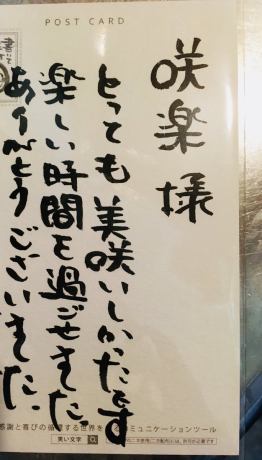 POST CARD
咲楽 様
とっても美咲いしかったです
楽しい時間を過ごせました
ありがとうございました。
感謝と喜びの循環する世界を
ミュニケーションツール
笑い文字